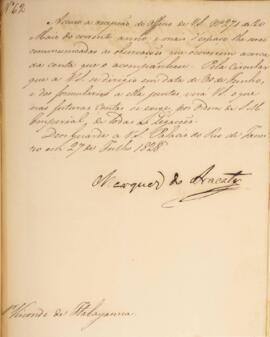 Nº 62
Accuso a recepção do Officio de V.S. Nº 271 de 20
Maio do corrente anno, e mais d'espaço lhe serão
communicadas as observações que occorrerem acerca
da conta que o acompanhava. Pela Circular
que a V.S. se dirigio em data de 30 de Junho,
e dos formularios a ella juntos verá V.S. o que
nas futuras contas se exige, por Ordem de S.M.
Imperial, de todas as Legações.
Deos Guarde a V.S. Palacio do Rio de Janei
ro em 27 de Julho 1828
Marquez de Aracaty
Visconde de Itabayanna.